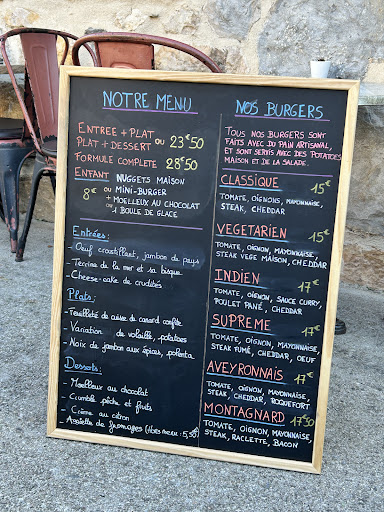 NOTRE MENU
ENTREE + PLAT
PLAT + DESSERT OU 23€50
FORMULE COMPLETE 28€50
ENFANT NUGGETS MAISON
8€ OU MINI-BURGER
+ MOELLEUX AU CHOCOLAT
OU 1 BOULE DE GLACE
Entrées:
- Oeuf croustillant, jambon de pays
- Terrine de la mer et sa bisque
- Cheese-cake de crudités
Plats:
- Feuilleté de cuisse de canard confite
- Variation de volaille, potatoes
- Noix de jambon aux épices, polenta
Desserts:
- Moelleux au chocolat
- Crumble pêche et fruits
- Crème au citron
- Assiette de fromages (Hors menu: 5,50€)
NOS BURGERS
TOUS NOS BURGERS SONT
FAITS AVEC DU PAIN ARTISANAL
ET SONT SERVIS AVEC DES POTATOES
MAISON ET DE LA SALADE.
CLASSIQUE 15€
TOMATE, OIGNONS, MAYONNAISE,
STEAK, CHEDDAR
VEGETARIEN 15€
TOMATE, OIGNON, MAYONNAISE,
STEAK VEGE MAISON, CHEDDAR
INDIEN 17€
TOMATE, OIGNON, SAUCE CURRY,
POULET PANÉ, CHEDDAR
SUPREME 17€
TOMATE, OIGNON, MAYONNAISE,
STEAK FUMÉ, CHEDDAR, OEUF
AVEYRONNAIS 17€
TOMATE, OIGNON, MAYONNAISE,
STEAK, CHEDDAR, ROQUEFORT
MONTAGNARD 17€50
TOMATE, OIGNON, MAYONNAISE,
STEAK, RACLETTE, BACON